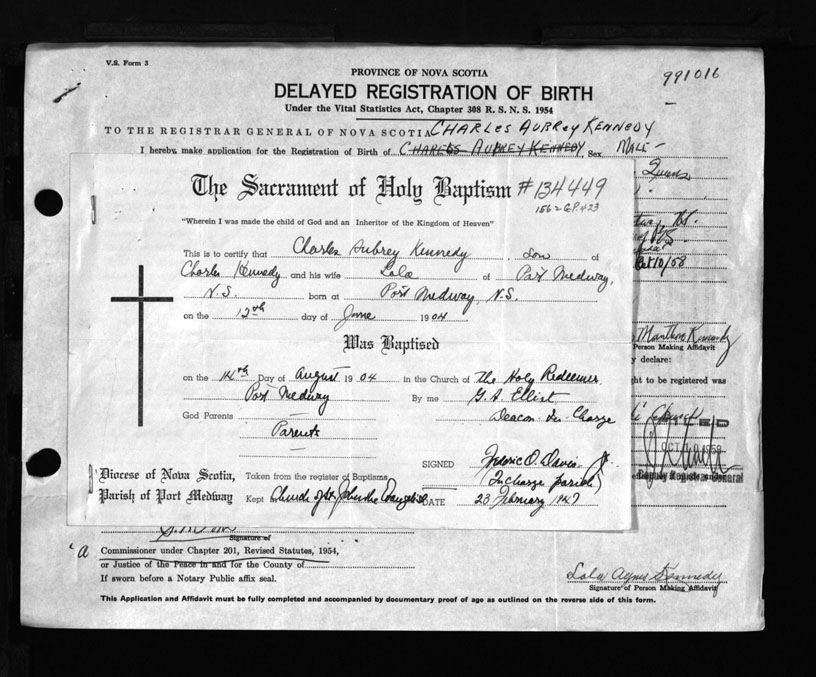 V.S. Form 3
PROVINCE OF NOVA SCOTIA
991016
DELAYED REGISTRATION OF BIRTH
Under the Vital Statistics Act, Chapter 308 R. S. N. S. 1954
TO THE REGISTRAR GENERAL OF NOVA SCOTIA CHARLES AUBREY KENNEDY
I hereby make application for the Registration of Birth of CHARLES AUBREY KENNEDY Sex MALE
Queens
The Sacrament of Holy Baptism #134449
"Wherein I was made the child of God and an Inheritor of the Kingdom of Heaven"
This is to certify that Charles Aubrey Kennedy, Son of
Charles Kennedy and his wife Lola of Port Medway,
N.S. born at Port Medway, N.S.
on the 12th day of June 1904
Was Baptised
Person Making Affidavit
y declare:
on the 14th Day of August 1904 in the Church of The Holy Redeemer
ht to be registered was
Port Medway By me G. A. Elliot
God Parents Deacon-In-Charge
Parents
SIGNED
Diocese of Nova Scotia, Taken from the register of Baptisms
In charge parish
Deputy Registrar General
Parish of Port Medway Kept Church of St John the Evangelist DATE 23 February 1947
Signature of
"a Commissioner under Chapter 201, Revised Statutes, 1954,
or Justice of the Peace in and for the County of
If sworn before a Notary Public affix seal.
Lola Agnes Kennedy
Signature of Person Making Affidavit
This Application and Affidavit must be fully completed and accompanied by documentary proof of age as outlined on the reverse side of this form.